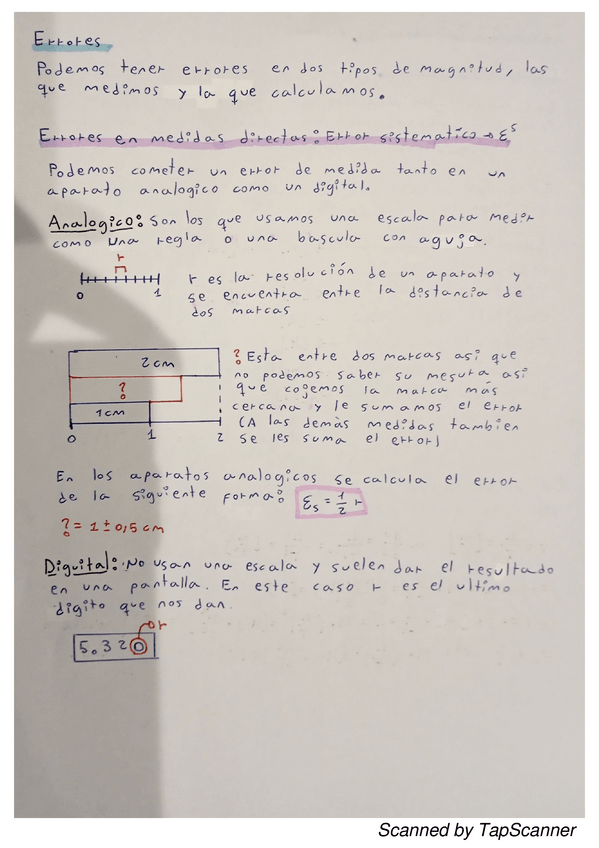 Errores
Podemos tener errores en dos tipos de magnitud, las
que medimos y la que calculamos.
Errores en medidas directas: Error sistematico → Ɛˢ
Podemos cometer un error de medida tanto en un
aparato analogico como un digital.
Analogico: Son los que usamos una escala para medir
como una regla o una bascula con aguja.
r
0 1
r es la resolución de un aparato y
se encuentra entre la distancia de
dos marcas
2 cm
?
1 cm
0 1 2
? Esta entre dos marcas asi que
no podemos saber su mesura asi
que cogemos la marca más
cercana y le sumamos el error
(A las demás medidas tambien
se les suma el error)
En los aparatos analogicos se calcula el error
de la siguiente forma: Ɛs = 1/2 r
? = 1 ± 0,5 cm
Diguital: No usan una escala y suelen dar el resultado
en una pantalla. En este caso r es el ultimo
digito que nos dan.
r
5.320
Scanned by TapScanner